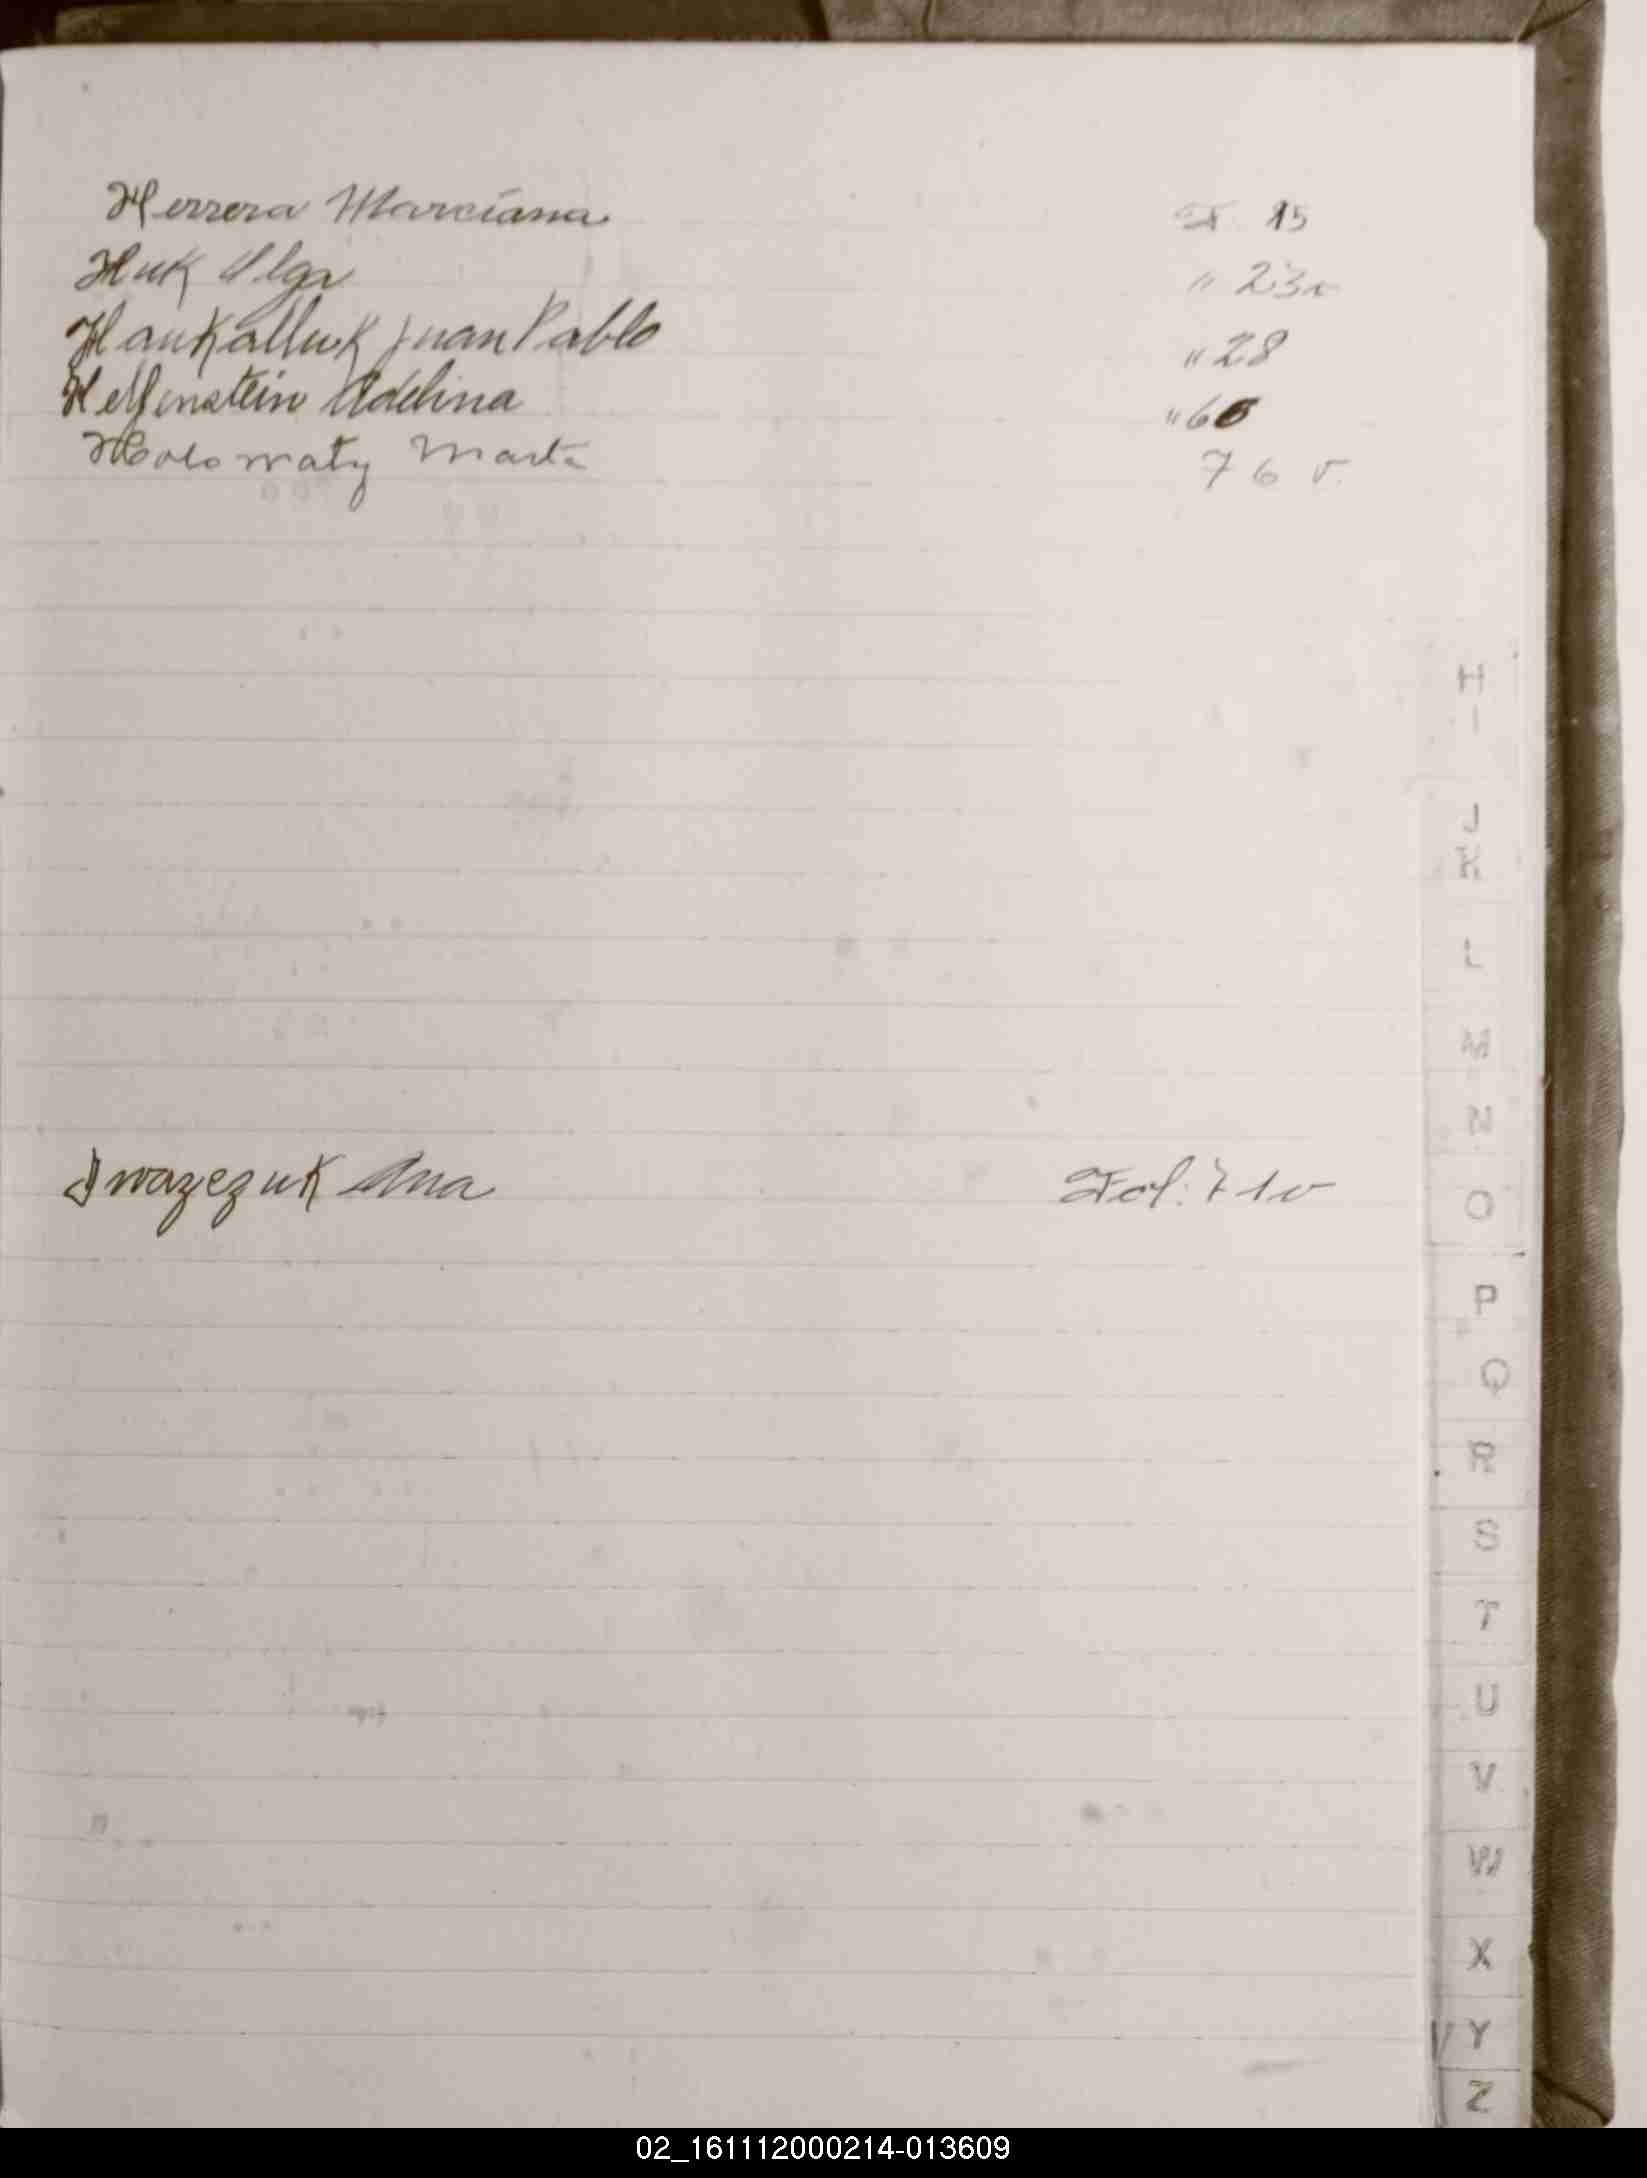 Herrera Marciana F. 15
Huk Olga " 23v
Haukalluk Juan Pablo " 28
Helfenstein Adelina " 60
Holowaty Marta 76 v.
H
I
J
K
L
M
N
Iwazczuk Ana Fol. 71v
O
P
Q
R
S
T
U
V
W
X
Y
Z
02_161112000214-013609